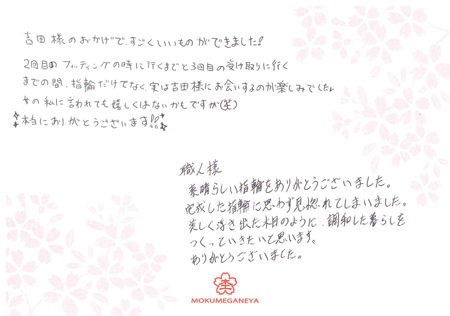 吉田様のおかげで、すごくいいものができました!
2回目のフィッティングの時に行くまでと3回目の受け取りに行く
までの間、指輪だけでなく、実は吉田様にお会いするのが楽しみでした♪
女の私に言われても嬉しくはないかもですが(笑)
本当にありがとうございます!!
職人様
素晴らしい指輪をありがとうございました。
完成した指輪に思わず見惚れてしまいました。
美しく浮き出た木目のように、調和した暮らしを
つくっていきたいと思います。
ありがとうございました。
MOKUMEGANEYA